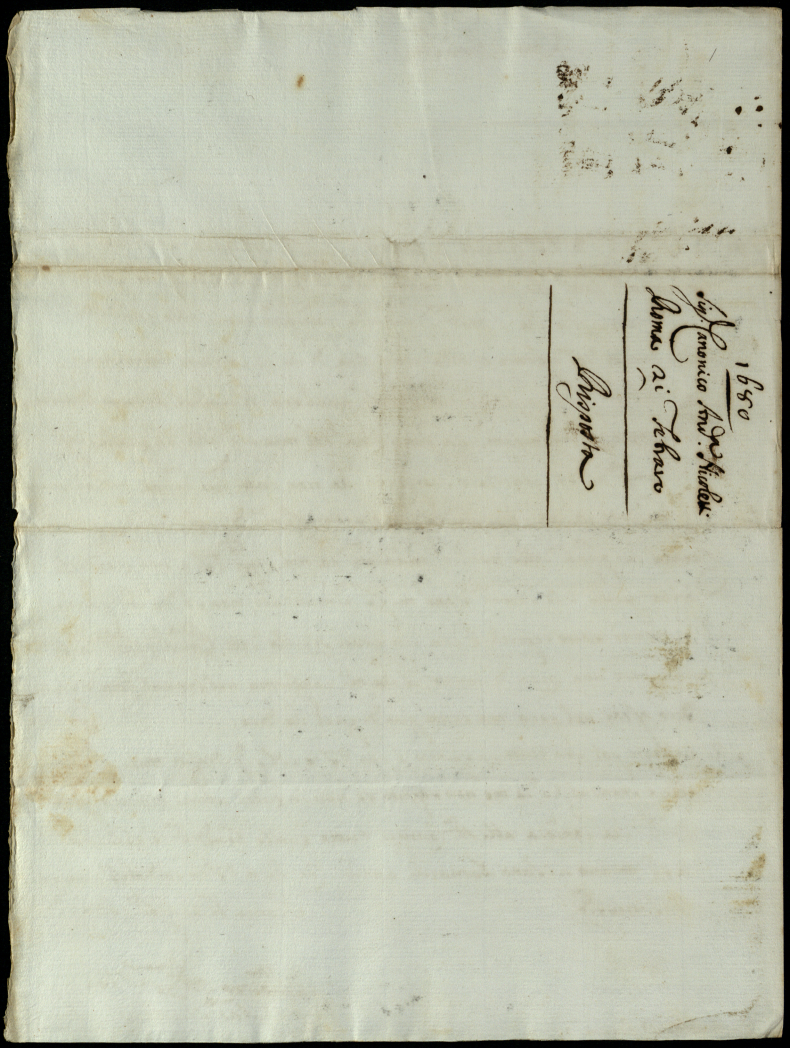 1680
Sig.r Canonico And.a Nicoleti
Roma 2i Febraro
Risposta